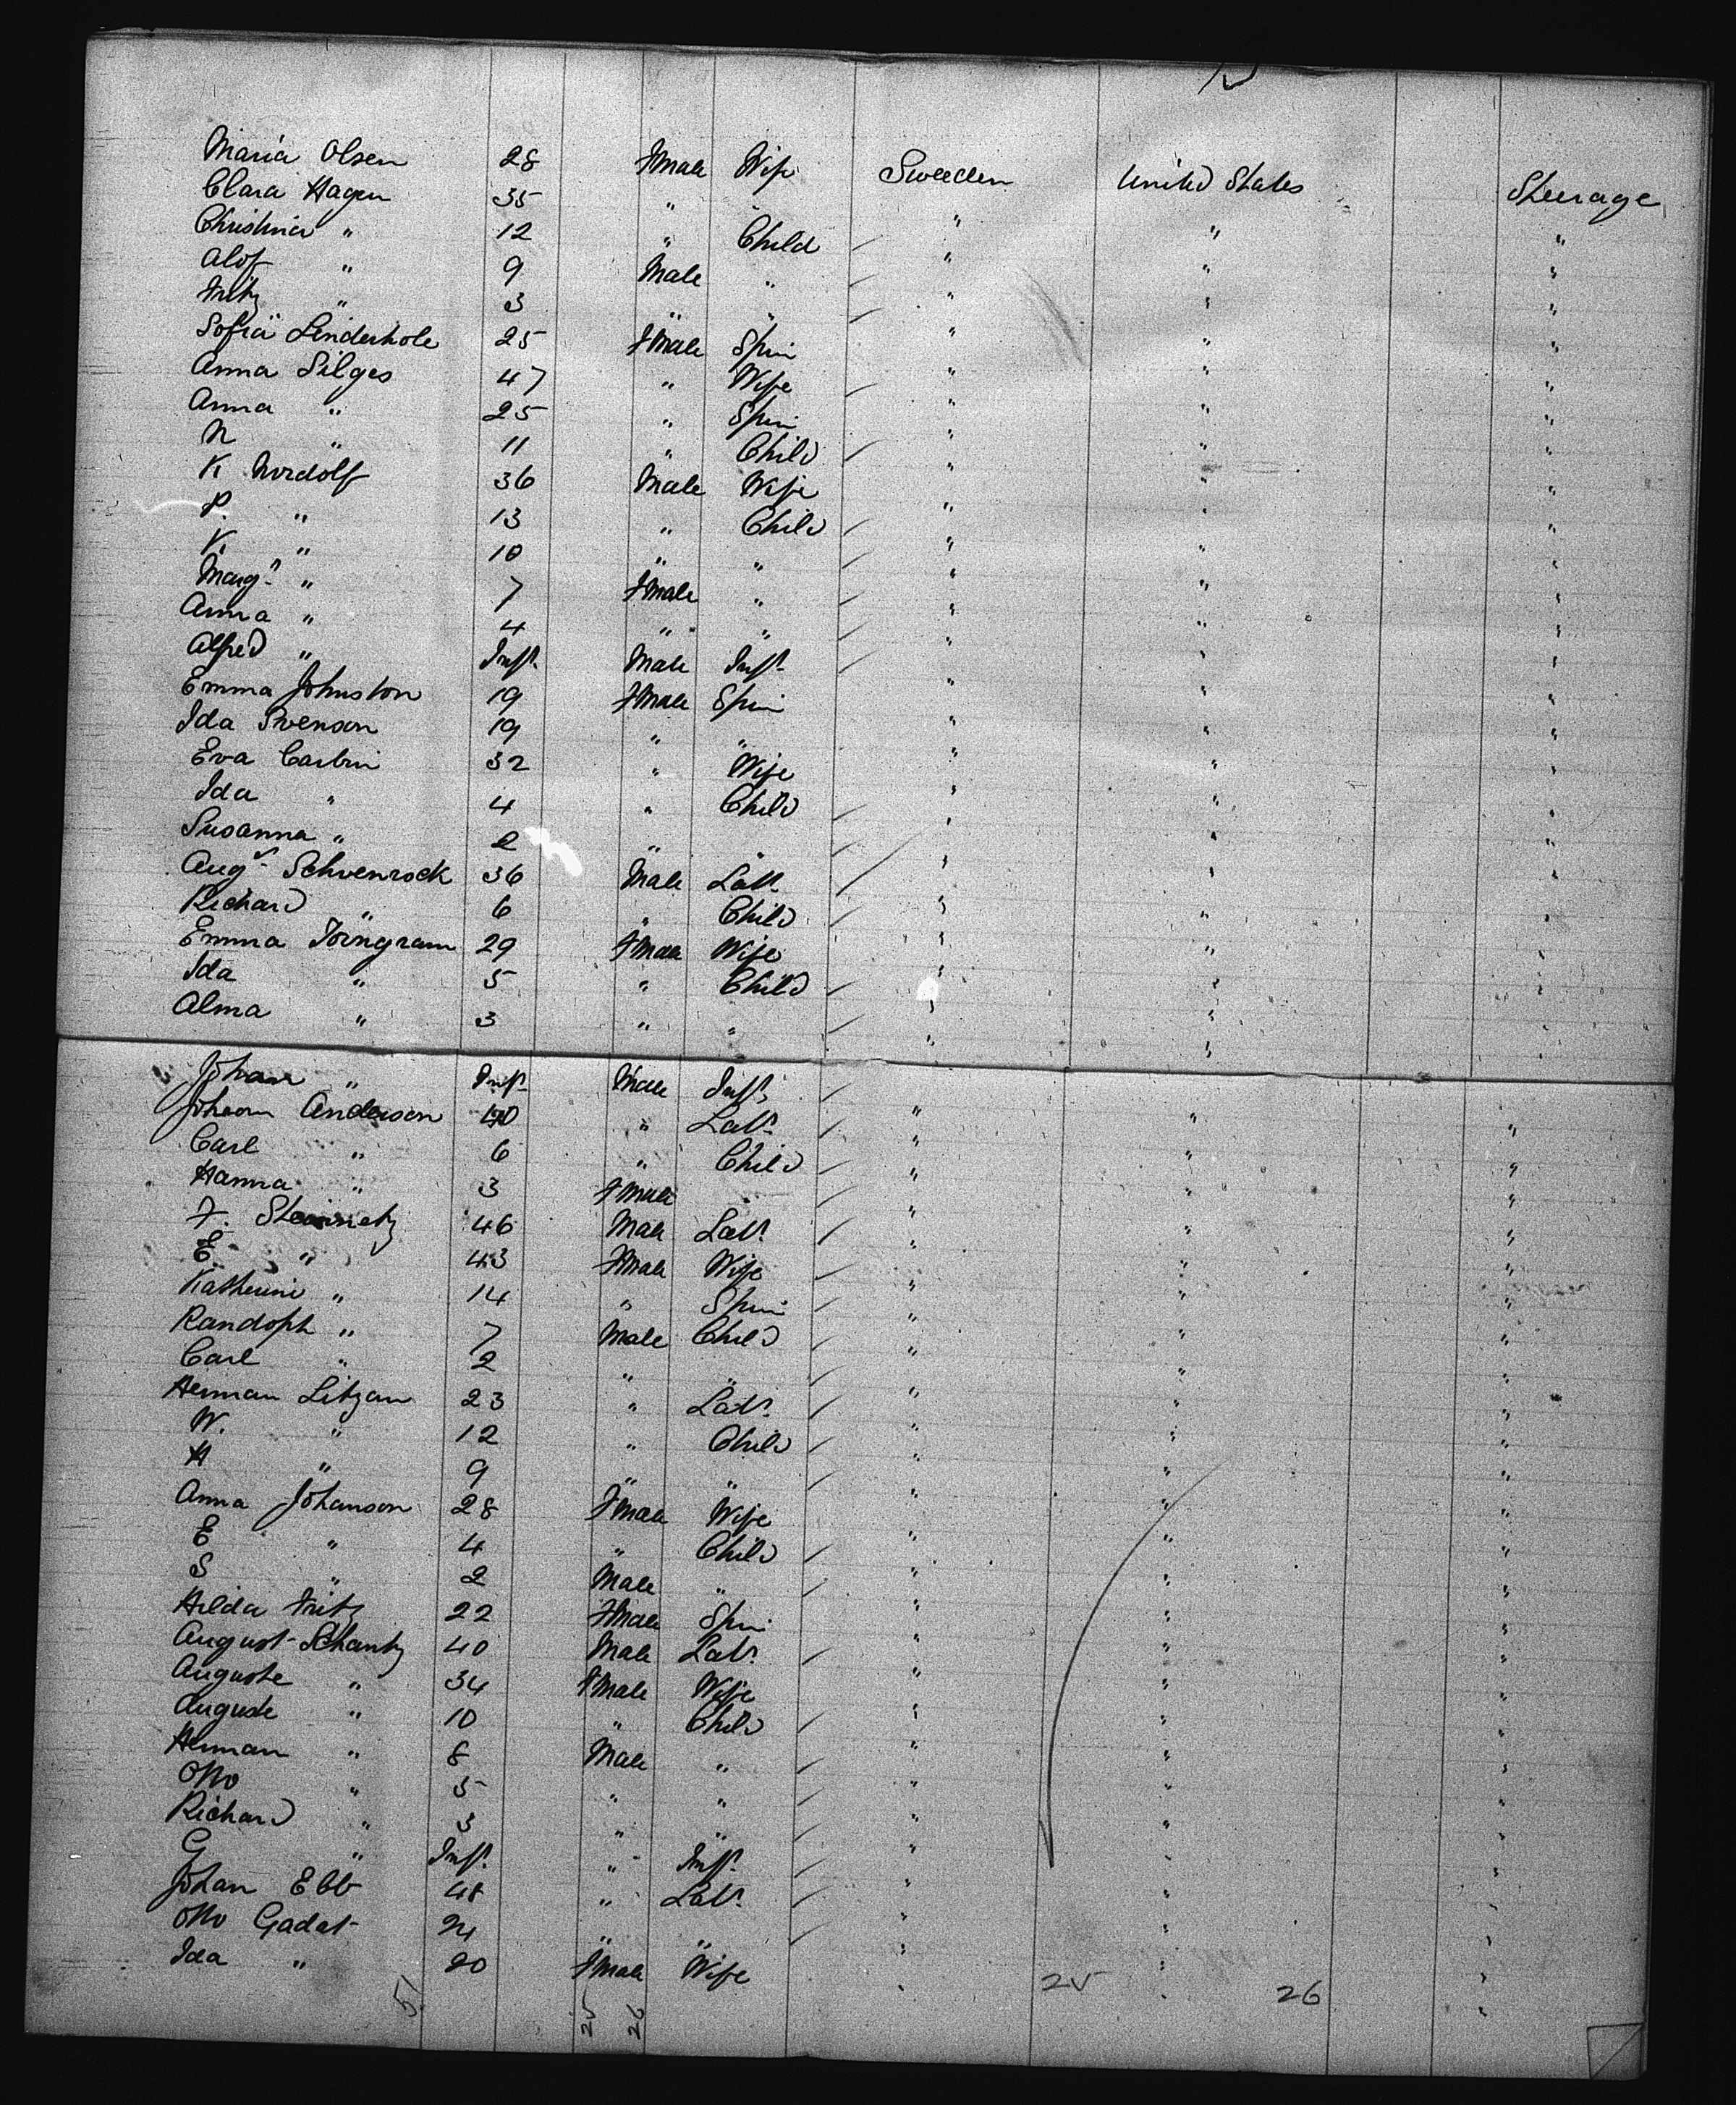 Maria Olsen 28 Fmale Wife Sweeden United States Steerage
Clara Hagen 35 " " " " "
Christina " 12 " Child " " "
Alof " 9 Male " " " "
Fritz " 3 " " " " "
Sofia Linderhole 25 Fmale Spin " " "
Anna Silges 47 " Wife " " "
Anna " 25 " Spin " " "
N " 11 " Child " " "
K Nordolf 36 Male Wife " " "
P. " 13 " Child " " "
K. " 10 " " " " "
Margt " 7 Fmale " " " "
Anna " 4 " " " " "
Alfred " Inft. Male Inft. " " "
Emma Johnston 19 Fmale Spin " " "
Ida Svenson 19 " " " " "
Eva Carlrin 32 " Wife " " "
Ida " 4 " Child " " "
Susanna " 2 " " " " "
Augt Schvenrock 36 Male Labr. " " "
Richard " 6 " Child " " "
Emma Torngram 29 Fmale Wife " " "
Ida " 5 " Child " " "
Alma " 3 " " " " "
Johan " Inft. Male Inft. " " "
Johan Anderson 40 " Labr. " " "
Carl " 6 " Child " " "
Hanna " 3 Fmale " " "
F. Steinmetz 46 Male Labr. " " "
E. " 43 Fmale Wife " " "
Katherine " 14 " Spin " " "
Randoph " 7 Male Child " " "
Carl " 2 " " " " "
Herman Litzan 23 " Labr. " " "
W. " 12 " Child " " "
H " 9 " " " " "
Anna Johanson 28 Fmale Wife " " "
E " 4 " Child " " "
S " 2 Male " " " "
Hilda Fritz 22 Fmale Spin " " "
August Schantz 40 Male Labr. " " "
Auguste " 34 Fmale Wife " " "
Auguste " 10 " Child " " "
Herman " 8 Male " " " "
Otto " 5 " " " " "
Richard " 3 " " " " "
G " Inft. " Inft. " " "
Johan Ebb 48 " Labr. " " "
Otto Gadat 24 " " " " "
Ida " 20 Fmale Wife " " "
51 25 26 25 26